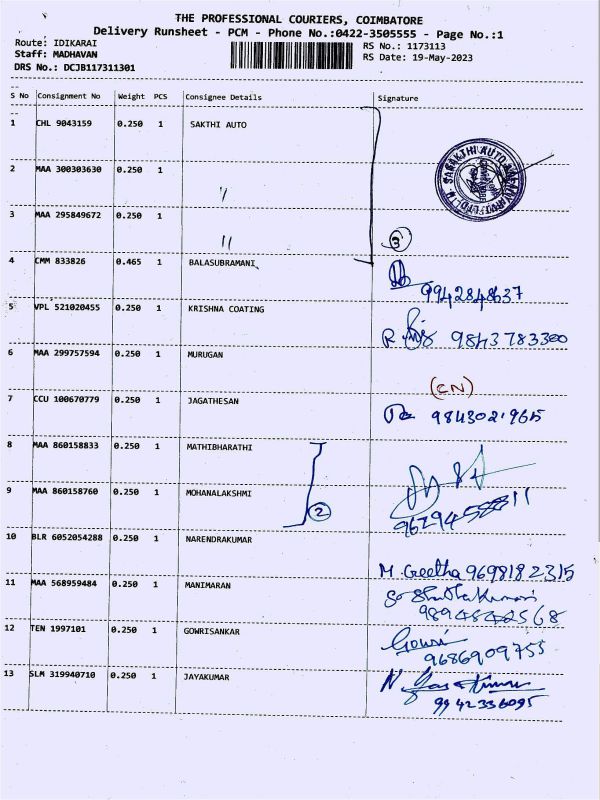 THE PROFESSIONAL COURIERS, COIMBATORE
Delivery Runsheet - PCM - Phone No.:0422-3505555 - Page No.:1
Route: IDIKARAI RS No.: 1173113
Staff: MADHAVAN RS Date: 19-May-2023
DRS No.: DCJB117311301
S No Consignment No Weight PCS Consignee Details Signature
1 CHL 9043159 0.250 1 SAKTHI AUTO
2 MAA 300303630 0.250 1
〃
3 MAA 295849672 0.250 1
〃 3
4 CMM 833826 0.465 1 BALASUBRAMANI
9942848637
5 VPL 521020455 0.250 1 KRISHNA COATING
R 9843783300
6 MAA 299757594 0.250 1 MURUGAN
(CN)
7 CCU 100670779 0.250 1 JAGATHESAN
9843021965
8 MAA 860158833 0.250 1 MATHIBHARATHI
9 MAA 860158760 0.250 1 MOHANALAKSHMI
2
10 BLR 6052054288 0.250 1 NARENDRAKUMAR
M. Geetha 9698182315
11 MAA 568959484 0.250 1 MANIMARAN
9894842568
12 TEN 1997101 0.250 1 GOWRISANKAR
Gowri
9686909755
13 SLM 319940710 0.250 1 JAYAKUMAR
N.
9942336095